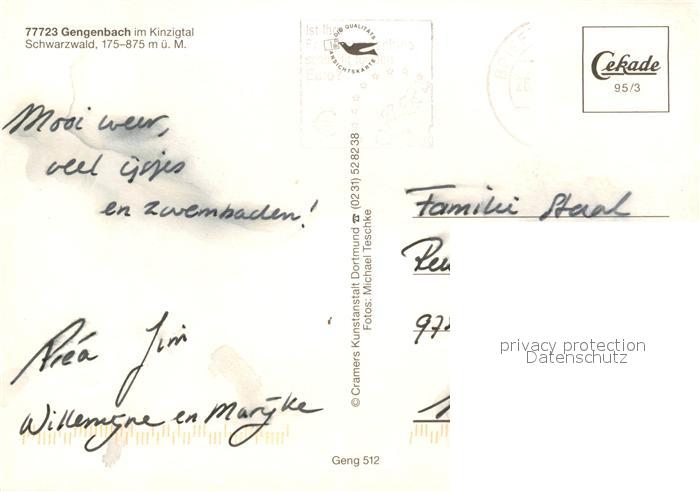 77723 Gengenbach im Kinzigtal
Schwarzwald, 175–875 m ü. M.
GUTE QUALITÄTS
ANSICHTSKARTE
Cekade
95/3
Mooi weer,
veel ijsjes
en zwembaden!
Jim
Willemijne en Marijke
© Cramers Kunstanstalt Dortmund ☎ (0231) 528238
Fotos: Michael Teschke
Familie Staal
privacy protection
Datenschutz
Geng 512